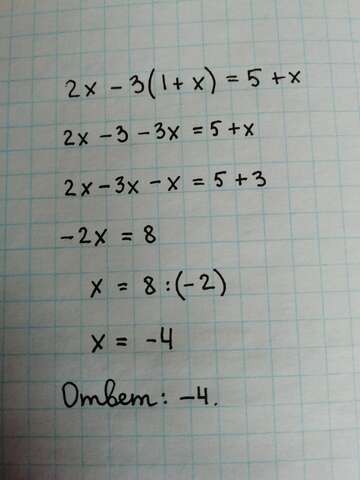 2x - 3(1 + x) = 5 + x
2x - 3 - 3x = 5 + x
2x - 3x - x = 5 + 3
-2x = 8
x = 8 : (-2)
x = -4
Ответ: -4.